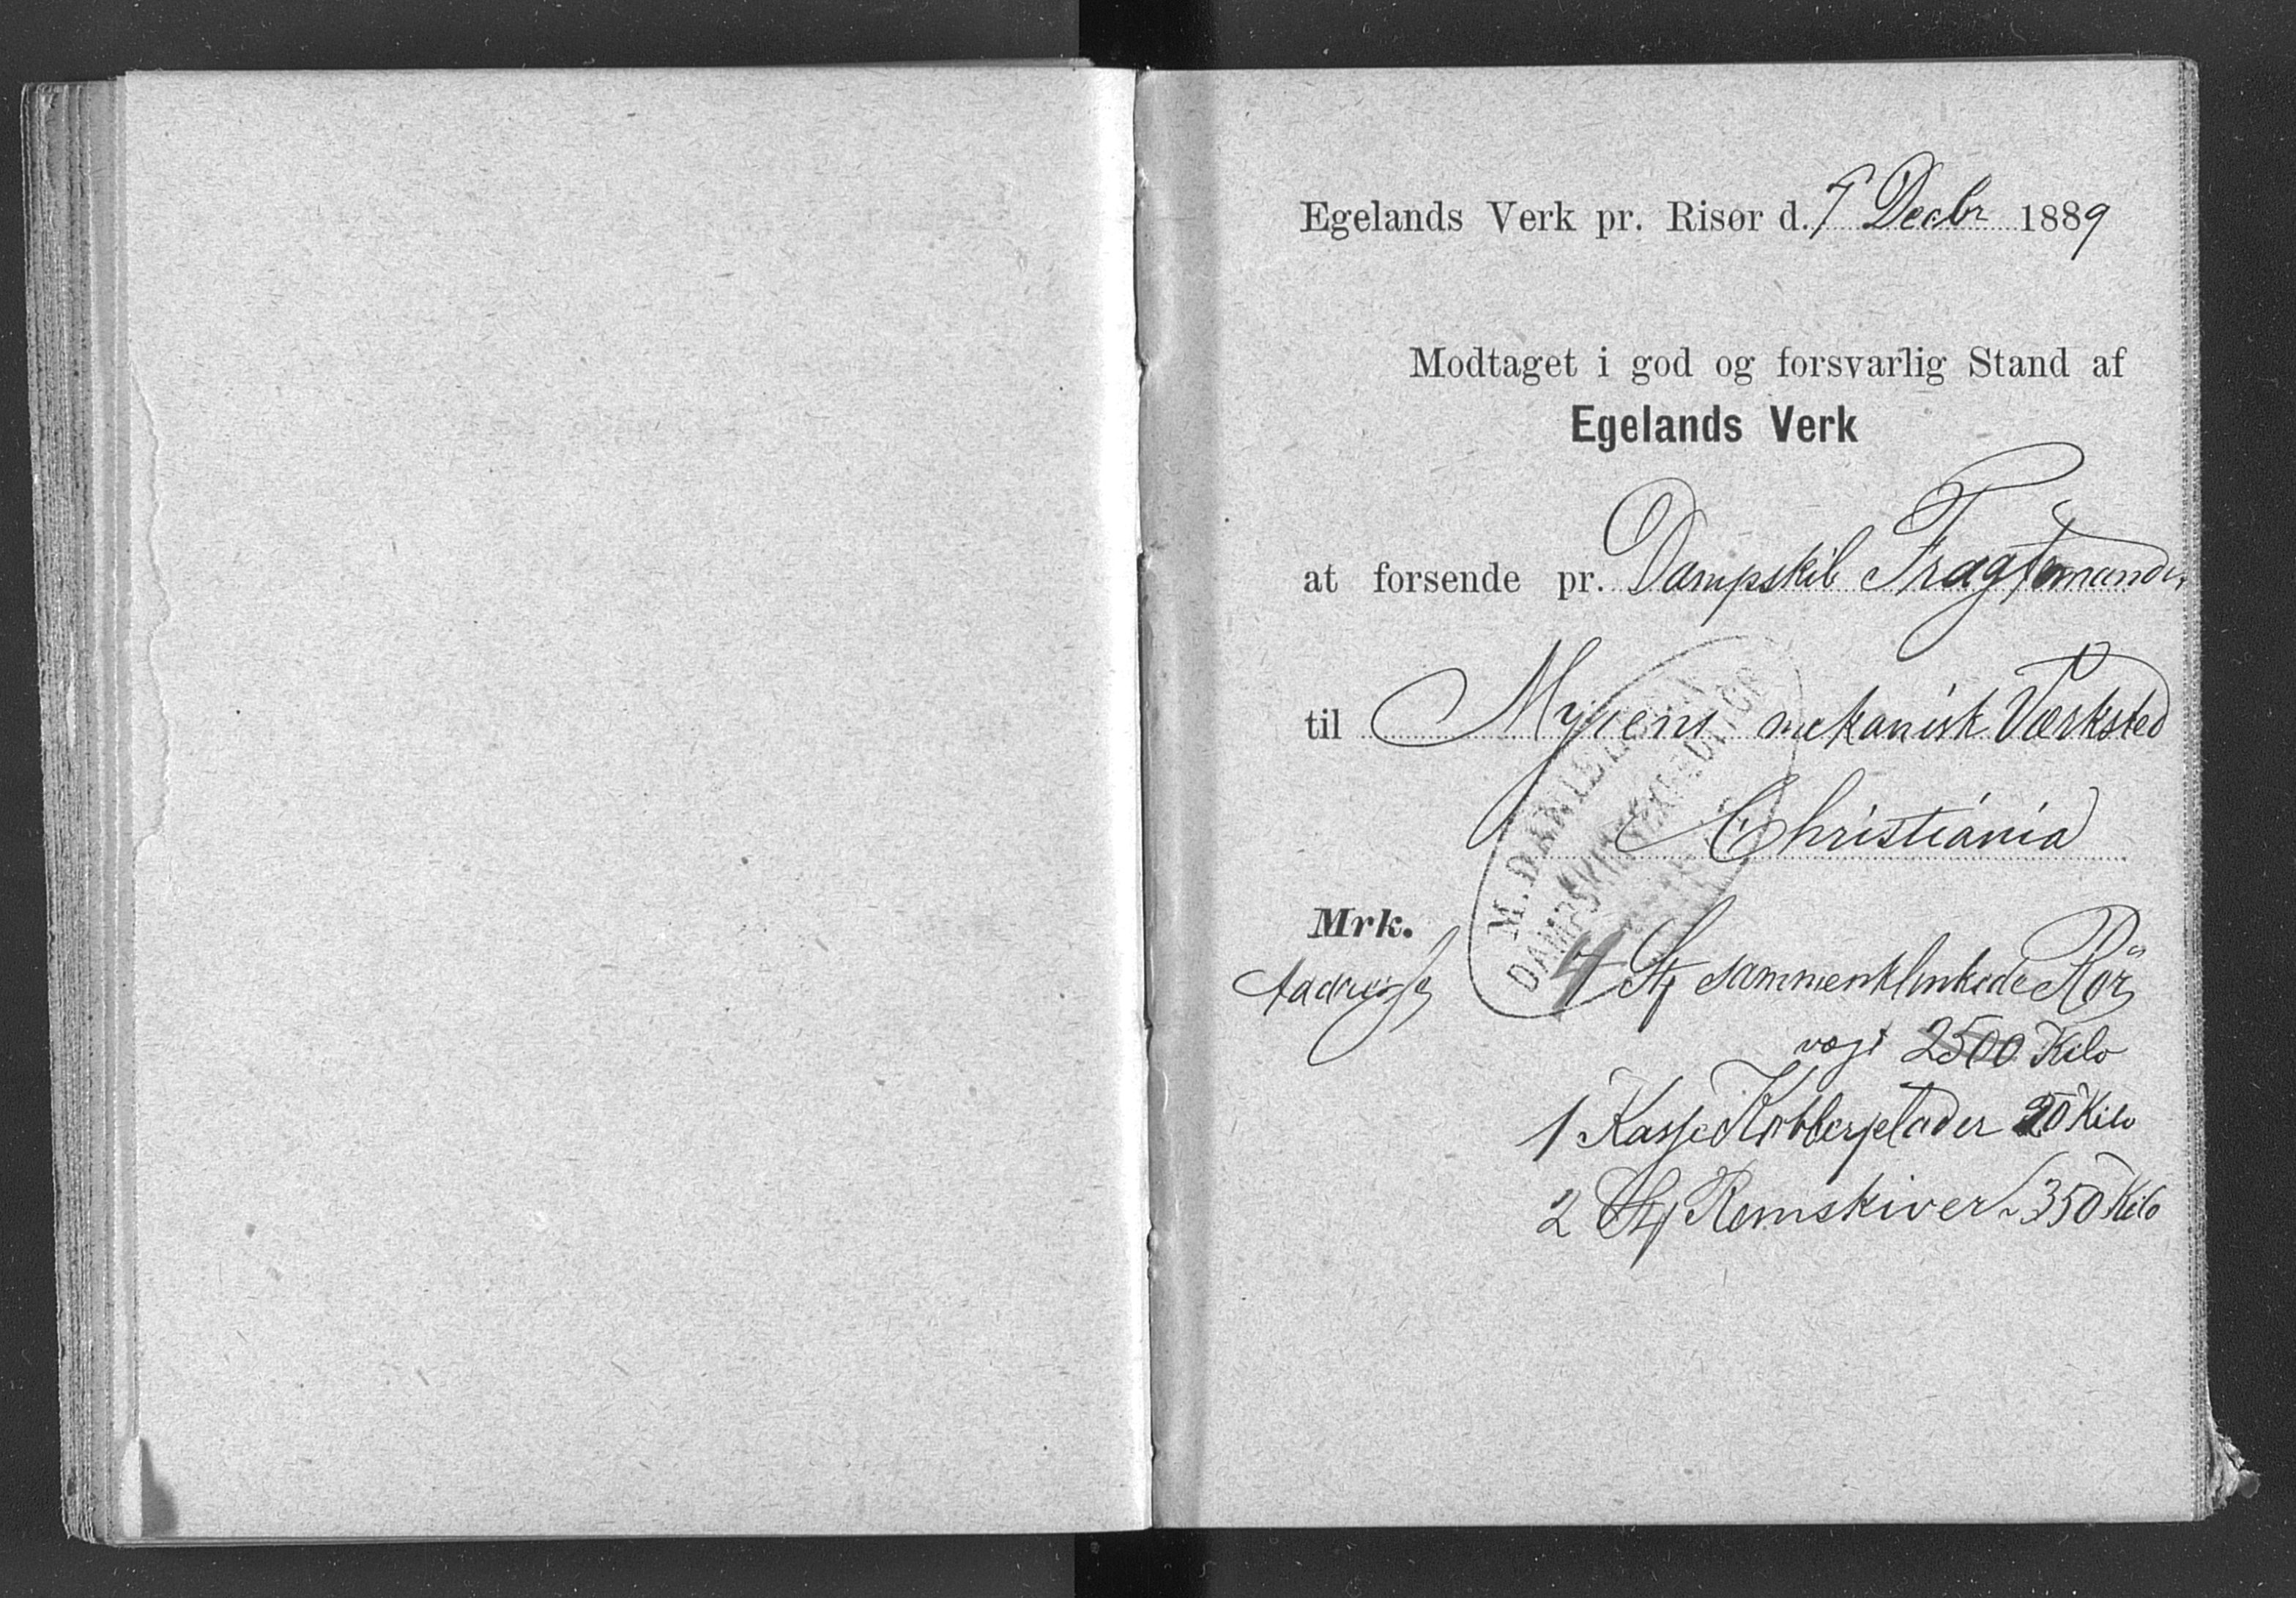 Egelands Verk pr. Risør d. 7 Decbr 1889
Modtaget i god og forsvarlig Stand af
Egelands Verk
at forsende pr. Dampskib Fragtemanden
til Myrens mekanisk Værksted
Christiania
M. DANIELSEN
DAMPSKIBSEXPEDITØR
Mrk.
Aadresse
4 St sammenklinkede Rør
vægt 2500 Kilo
1 Kasse Kobberplader 20 Kilo
2 St Remskiver 350 Kilo